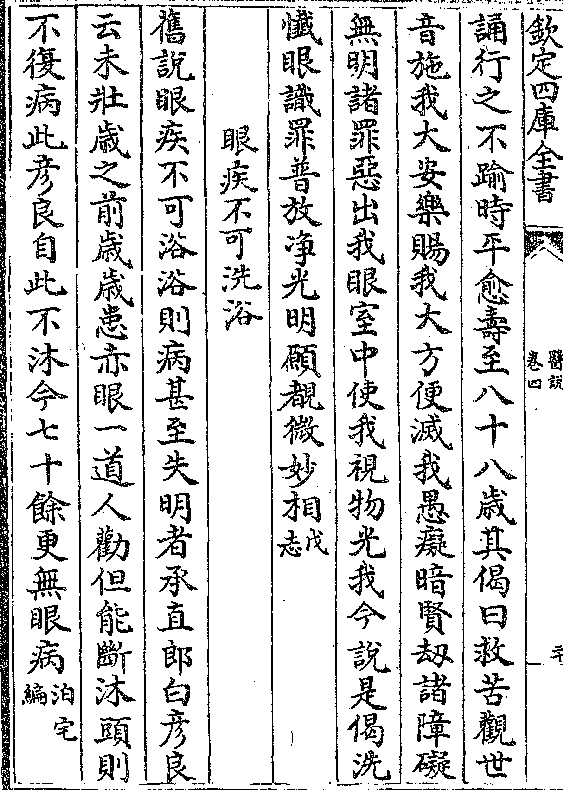 欽定四庫全書
醫說
卷四
誦行之不踰時平愈壽至八十八歲其偈曰救苦觀世
音施我大安樂賜我大方便滅我愚癡暗賢刼諸障礙
無明諸罪惡出我眼室中使我視物光我今說是偈洗
懺眼識罪普放淨光明願覩微妙相戊志
眼疾不可洗浴
舊說眼疾不可浴浴則病甚至失明者承直郎白彦良
云未壯歲之前歲歲患赤眼一道人勸但能斷沐頭則
不復病此彦良自此不沐今七十餘更無眼病泊宅編